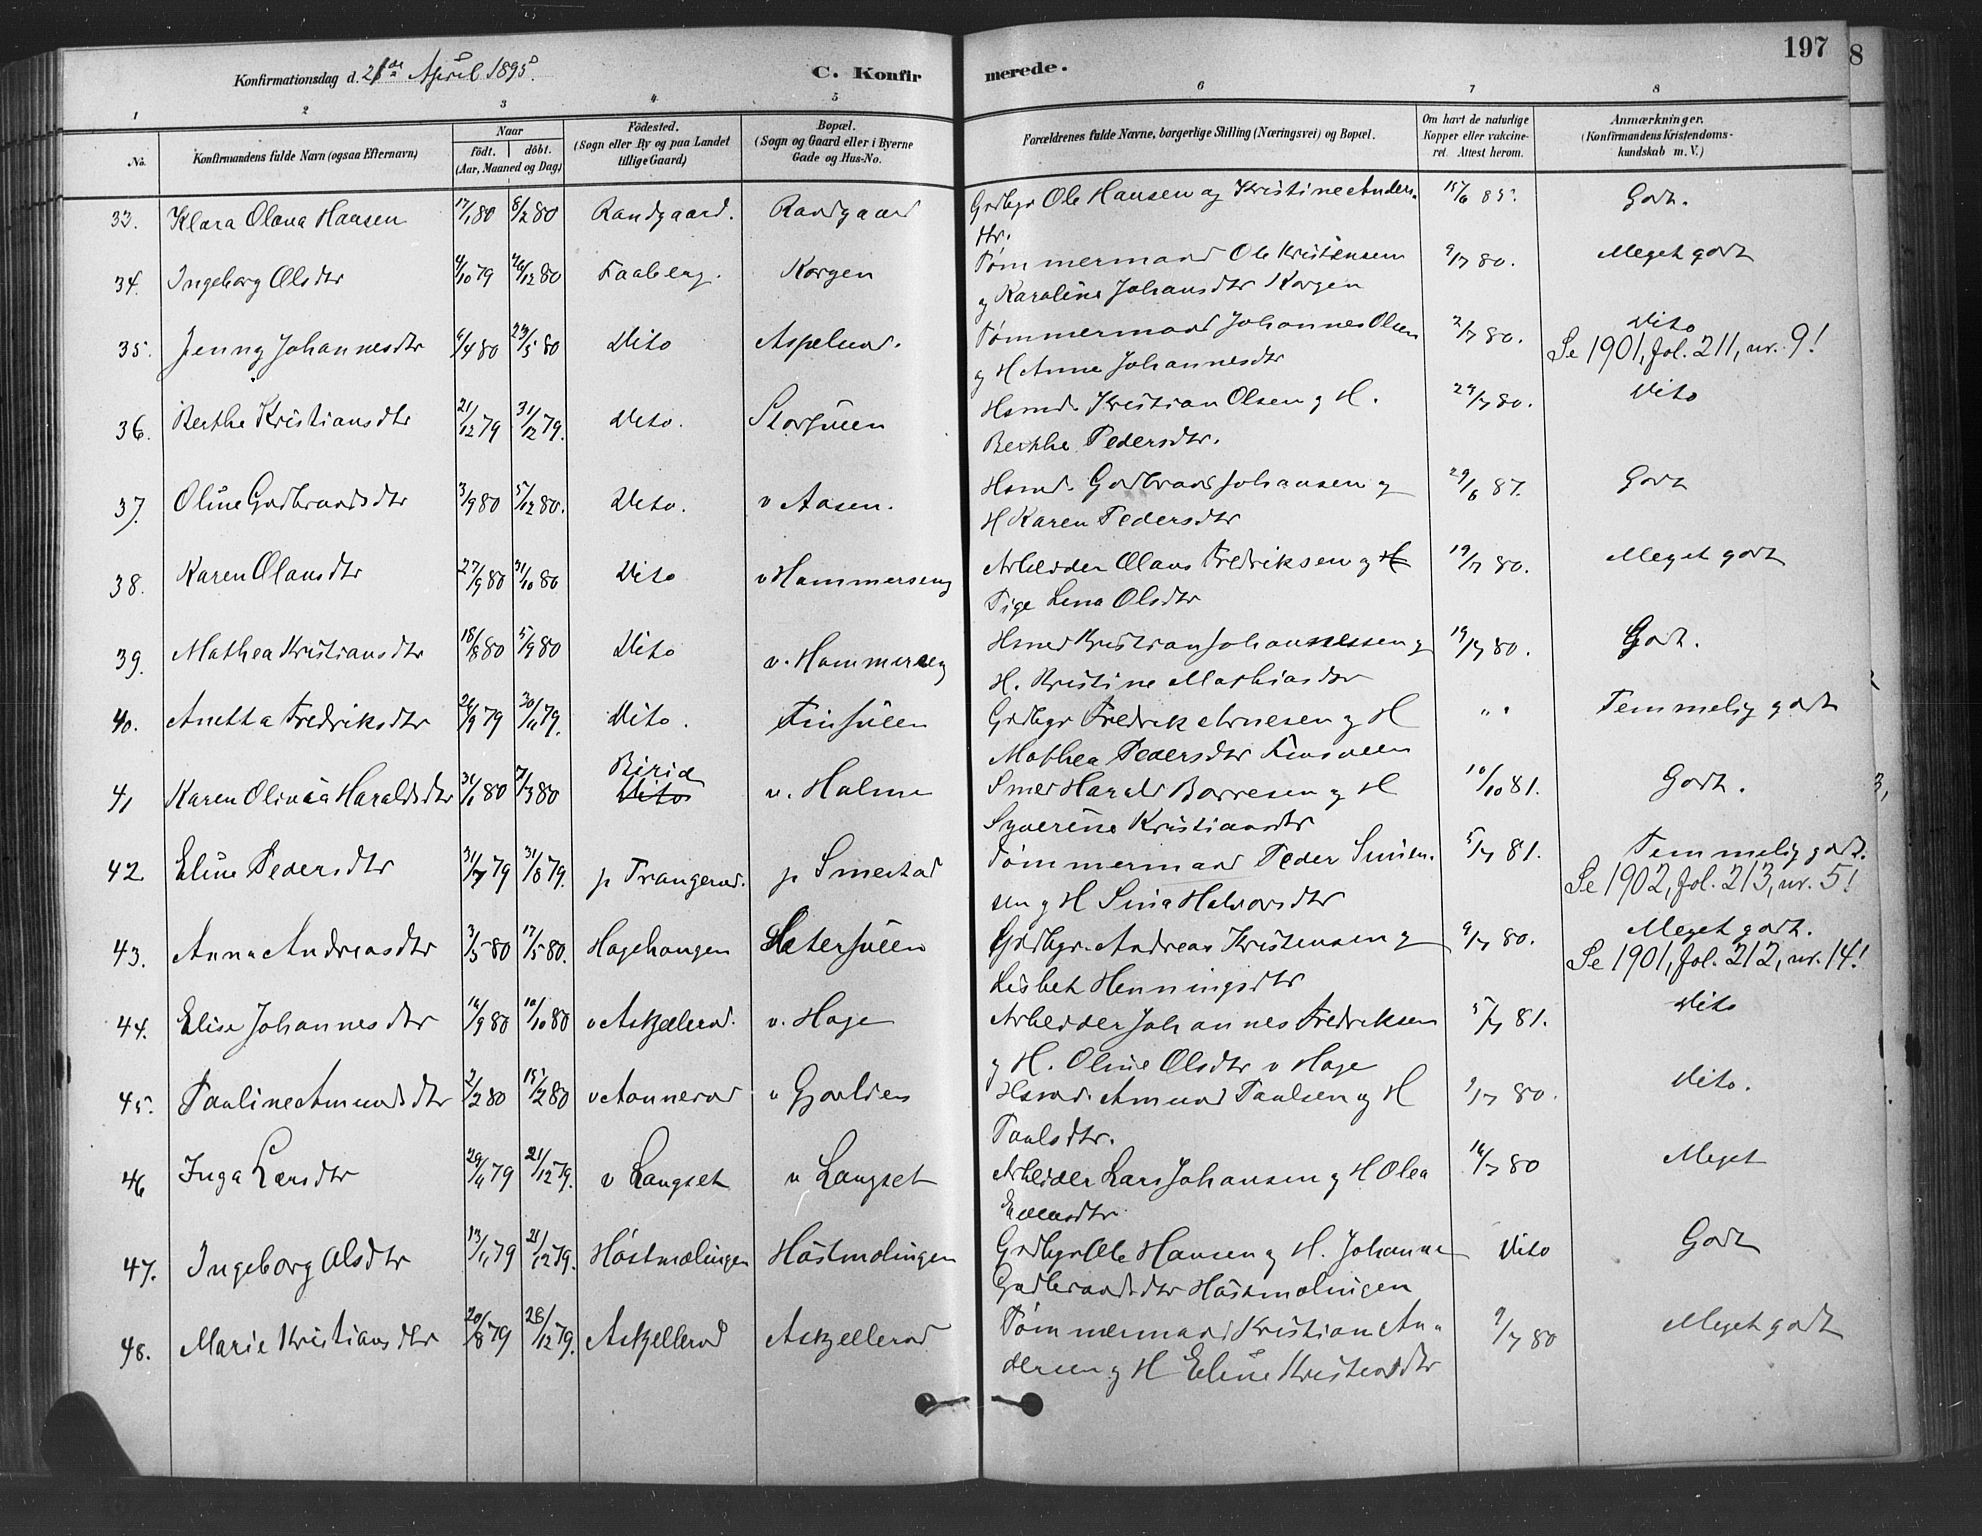 197
8
Konfirmationsdag d. 21de April 1895.
C. Konfir merede.
1 2 3 4 5 6 7 8
No.
Konfirmandens fulde Navn (ogsaa Efternavn)
Naar
födt. döbt.
(Aar, Maaned og Dag)
Födested.
(Sogn eller By og paa Landet
tillige Gaard)
Bopæl.
(Sogn og Gaard eller i Byerne
Gade og Hus-No.
Forældrenes fulde Navne, borgerlige Stilling (Næringsvei) og Bopæl.
Om havt de naturlige
Kopper eller vakcine-
ret. Attest herom.
Anmærkninger.
(Konfirmandens Kristendoms-
kundskab m. V.)
33. Klara Olana Hansen 17/1 80 8/2 80 Randgaard. Randgaard Grdbgr Ole Hansen og Kristine Anders. 15/6 85. Godt.
dtr.
34. Ingeborg Olsdtr 4/10 79 26/12 80 Faaberg. Korgen Tømmermand Ole Kristensen 9/7 80. Meget godt
og Karoline Johansdtr Korgen
35. Jenny Johannesdtr 6/4 80 23/5 80 Dito Aspelund. Tømmermand Johannes Olsen 2/7 80. Dito
og H Anne Johannesdtr Se 1901, fol. 211, nr. 9!
36. Berthe Kristiansdtr 21/12 79 31/12 79. Dito. Storsveen Hsmd. Kristian Olsen og H. 29/7 80. Dito
Berthe Pedersdtr.
37. Oline Gudbrandsdtr 3/9 80 5/12 80. Dito. v Aasen. Hsmd. Gudbrand Johansen og 29/6 87. Godt
H Karen Pedersdtr
38. Karen Olausdtr 27/9 80 31/10 80 Dito v Hammerseng Arbeider Olaus Fredriksen og H 19/7 80. Meget godt
Pige Lena Olsdtr
39. Mathea Kristiansdtr 18/8 80 5/9 80 Dito v. Hammerseng Hsmd Kristian Johannessen og 19/7 80. Godt.
H. Kristine Mathiasdtr
40. Anetta Fredriksdtr 26/9 79 30/11 79. Dito. Finsveen Grdbgr Fredrik Arnesen og H „ „ Temmelig godt
Mathea Pedersdtr Finsveen
41 Karen Olivia Haraldsdtr 31/1 80 7/3 80 Birid Dito v. Holme Smed Harald Borresen og H 10/10 81. Godt.
Syverine Kristiansdtr
42. Eline Pedersdtr 31/7 79 31/8 79. p Trangerud. p Smestad Tømmermand Peder Simen. 5/7 81. Temmelig godt.
sen og H Sina Halvorsdtr Se 1902, fol. 213, nr. 5!
43. Anna Andreasdtr 3/5 80 17/5 80. Hagehaugen Sætersveen Grdbgr. Andreas Kristensen og 9/7 80. Meget godt.
Lisbet Henningsdtr Se 1901, fol. 212, nr. 14!
44. Elise Johannesdtr 16/9 80 10/10 80 v Askjellerud. v. Hage Arbeider Johannes Fredriksen 5/7 81. Dito
og H. Oline Olsdtr v Hage
45. Pauline Amundsdtr 2/2 80 15/2 80 v Aannerud v Gjovlien Hsmd. Amund Paulsen og H 9/7 80. Dito.
Paulsdtr.
46 Inga Larsdtr 29/11 79 21/12 79. v Langset v Langset Arbeider Lars Johansen og H Olea 16/7 80 Meget
47. Ingeborg Olsdtr 13/11 79 21/12 79. Höstmælingen Höstmælingen Grdbgr Ole Hansen og H. Johanne Dito Godt
Gudbrandsdtr Höstmælingen
48. Marie Kristiansdtr 20/8 79 28/12 79. Askjellerud Askjellerud Tømmermand Kristian An- 9/7 80 Meget godt
dersen og H Eline Kristensdtr